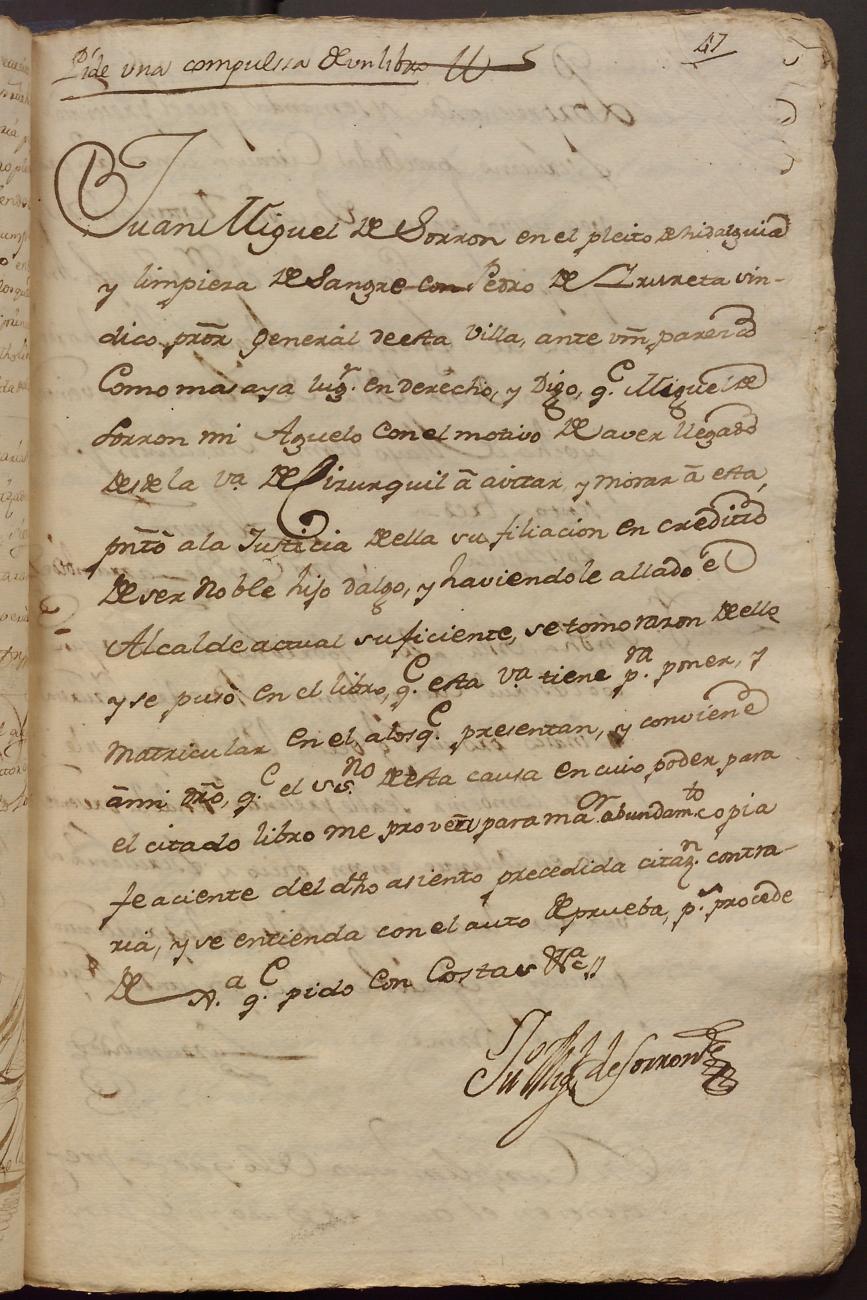 Pide una compulssa de un libro
47
Juan Miguel de Sorron en el pleito de hidalguia
y limpieza de Sangre con Pedro de Urureta sin-
dico, pror general de esta Villa, ante vm, parezco
Como mas aya lugr. en derecho, y Digo, q.e Miguel de
Sorron mi Aguelo con el motivo de aver llegado
desde la va. de Cizurquil â avitar, y morar â esta,
pnto â la Justicia de ella su filiacion en credito
de ser Noble hijo dalgo, y haviendole allado el
Alcalde actual suficiente, se tomo razon de ello
y se puso en el libro, q.e esta va. tiene p.ra poner, y
Matricular en el a los q.e presentan, y conviene
â mi dro, q.e el ss.no de esta causa en cuio poder para
el citado libro me provea para maor abundam.to copia
feaciente del dho asiento precedida citazn. contra-
ria, y se entienda con el auto de prueba, p.s procede
de J.a q.e pido con Costas &a.
Jun Migl de Sorron